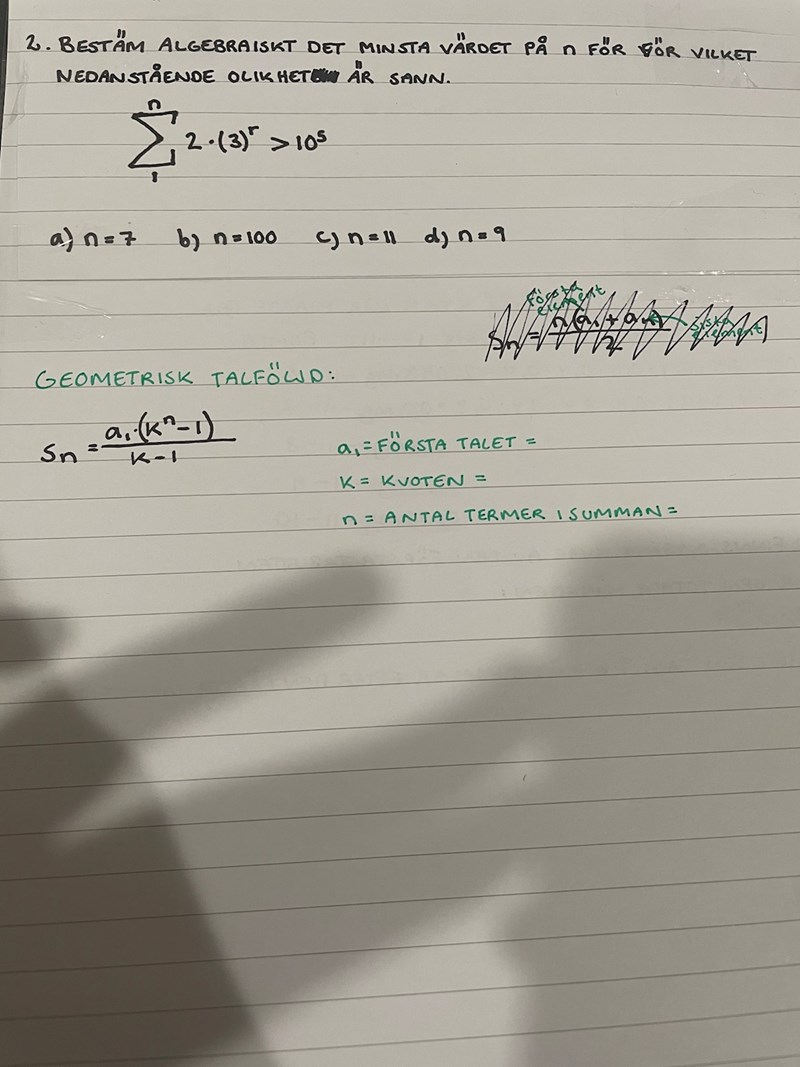 2. BESTÄM ALGEBRAISKT DET MINSTA VÄRDET PÅ n FÖR FÖR VILKET
NEDANSTÅENDE OLIKHET ÄR SANN.
n
∑ 2·(3)^r > 10^5
1
a) n=7 b) n=100 c) n=11 d) n=9
Första
element
Sn = n(a₁ + an)/2 sista
element
GEOMETRISK TALFÖLJD:
Sn = a₁·(K^n-1)/K-1
a₁ = FÖRSTA TALET =
K = KVOTEN =
n = ANTAL TERMER I SUMMAN =